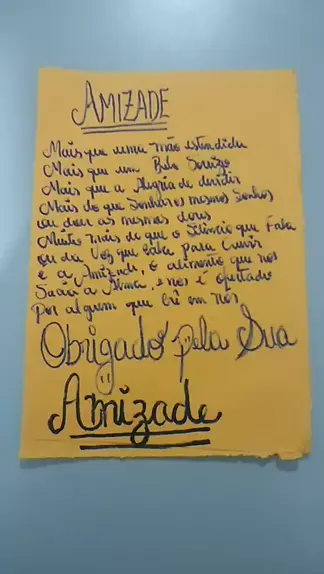 AMIZADE
Mais que uma mão estendida
Mais que um Belo Sorriso
Mais que a Alegria de dividir
Mais do que Sonhar os mesmos Sonhos
ou doer as mesmas dores
Muito mais do que o Silêncio que Fala
ou da Voz que cala para ouvir
é a Amizade, o alimento que nos
a Alma, e nos é ofertado
Por alguem que crê em nós
Obrigado pela Sua
Amizade